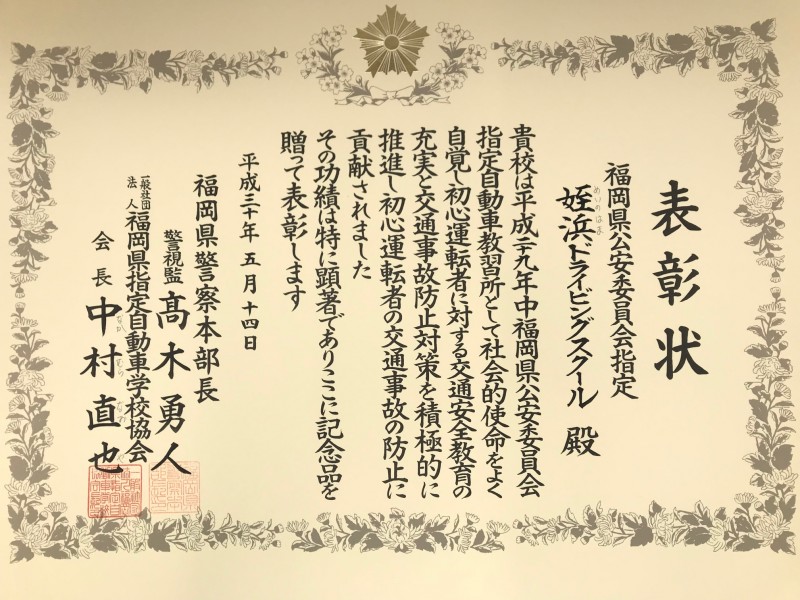 表彰状
福岡県公安委員会指定
姪浜ドライビングスクール 殿
めいのはま
貴校は平成二十九年中福岡県公安委員会
指定自動車教習所として社会的使命をよく
自覚し初心運転者に対する交通安全教育の
充実と交通事故防止対策を積極的に
推進し初心運転者の交通事故の防止に
貢献されました
その功績は特に顕著でありここに記念品を
贈って表彰します
平成三十年五月十四日
福岡県警察本部長
警視監 髙木勇人
一般社団法人 福岡県指定自動車学校協会
会長 中村直也